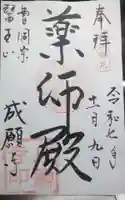 奉拝
令和七年
十一月九日
薬師殿
曹洞宗
醫王山
成願寺